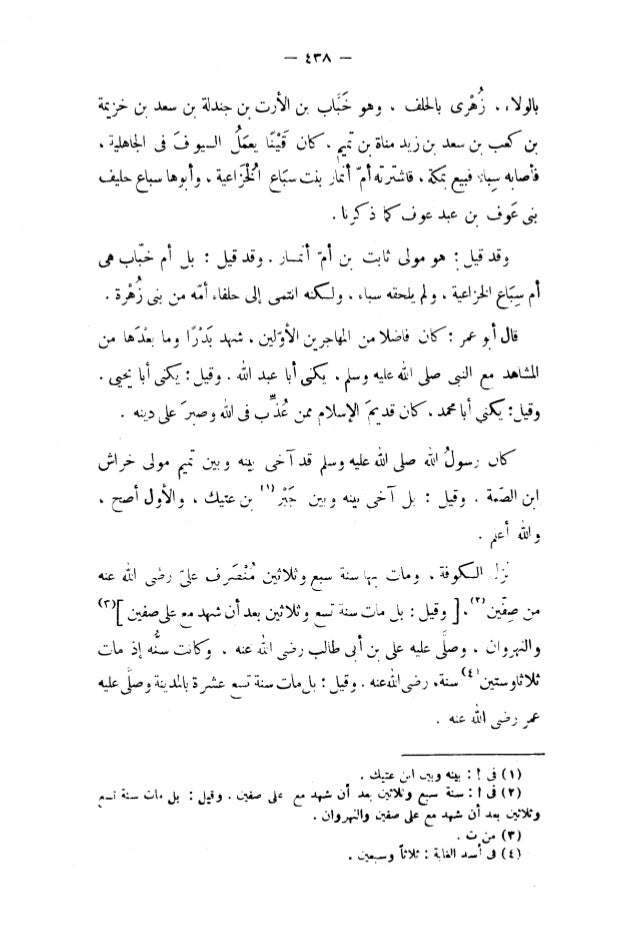 — ٤٣٨ —
بالولاء، زُهْرى بالحلف، وهو خَبَّاب بن الأرت بن جندلة بن سعد بن خزيمة
بن كعب بن سعد بن زيد مناة بن تميم. كان قَيْنًا يعمَلُ السيوفَ فى الجاهلية،
فأصابه سِباء فبيع بمكة، فاشترته أمّ أنمار بنت سبَاع الْخزَاعية، وأبوها سباع حليف
بنى عَوف بن عبد عوف كما ذكرنا.
وقد قيل: هو مولى ثابت بن أمّ أنمسار. وقد قيل: بل أم خبّاب هى
أم سِبَاع الخزاعية، ولم يلحقه سباء، ولسكنه انتمى إلى حلفاء أمّه من بنى زُهْرة.
قال أبو عمر: كان فاضلا من المهاجرين الأوّلين، شهد بَدْرًا وما بعْدَها من
المشاهد مع النبى صلى الله عليه وسلم. يكنى أبا عبد الله. وقيل: يكنى أبا يحيى.
وقيل: يكنى أبا محمد، كان قديمَ الإسلام ممن عُذِّب فى الله وصبرَ على دينه.
كان رسولُ الله صلى الله عليه وسلم قد آخى بينه وبين تميم مولى خراش
ابن الصّمة. وقيل: بل آخى بينه وبين جَبْر(١) بن عتيك، والأول أصح،
والله أعلم.
نزل السكوفة، ومات بها سنة سبع وثلاثين مُنْصَرف علىّ رضى الله عنه
من صِفّين(٢). [وقيل: بل مات سنة تسع وثلاثين بعد أن شهد مع على صفين](٣)
والنهروان، وصلَّى عليه على بن أبى طالب رضى الله عنه، وكانت سنُّه إذ مات
ثلاثا وستين(٤) سنة، رضى الله عنه. وقيل: بل مات سنة تسع عشرة بالمدينة وصلَّى عليه
عمر رضى الله عنه.
(١) فى أ: بينه وبين ابن عتيك.
(٢) فى أ: سنة سبع وثلاثين بعد أن شهد مع على صفين. وقيل: بل مات سنة تسع
وثلاثين بعد أن شهد مع على صفين والنهروان.
(٣) من ت.
(٤) فى أسد الغابة: ثلاثاً وسبعين.